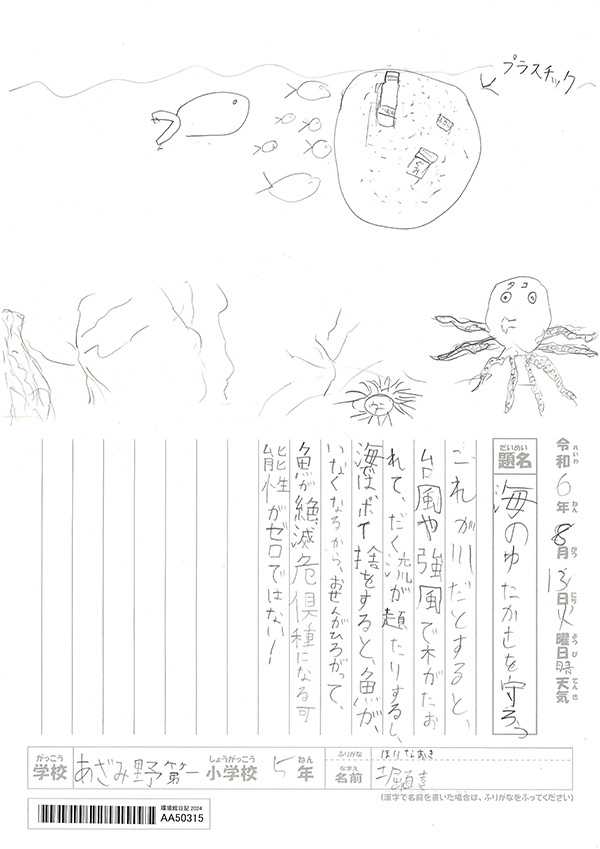 プラスチック
タコ
令和6年8月13日火曜日晴天気
れいわ ねん がつ にち ようび てんき
だいめい
題名
海のゆたかさを守ろう
これが川だとすると、
台風や強風で木がたお
れて、だく流が起たりすると、
海では、ポイ捨をすると、魚が、
いなくなるから、おせんがひろがって、
魚が絶滅危倶種になる可
能性がゼロではない!
がっこう しょうがっこう ねん
学校 あざみ野第一小学校 5年
ふりがな ほりなおき
なまえ
名前 堀直
(漢字で名前を書いた場合は、ふりがなをふってください)
環境絵日記 2024
AA50315